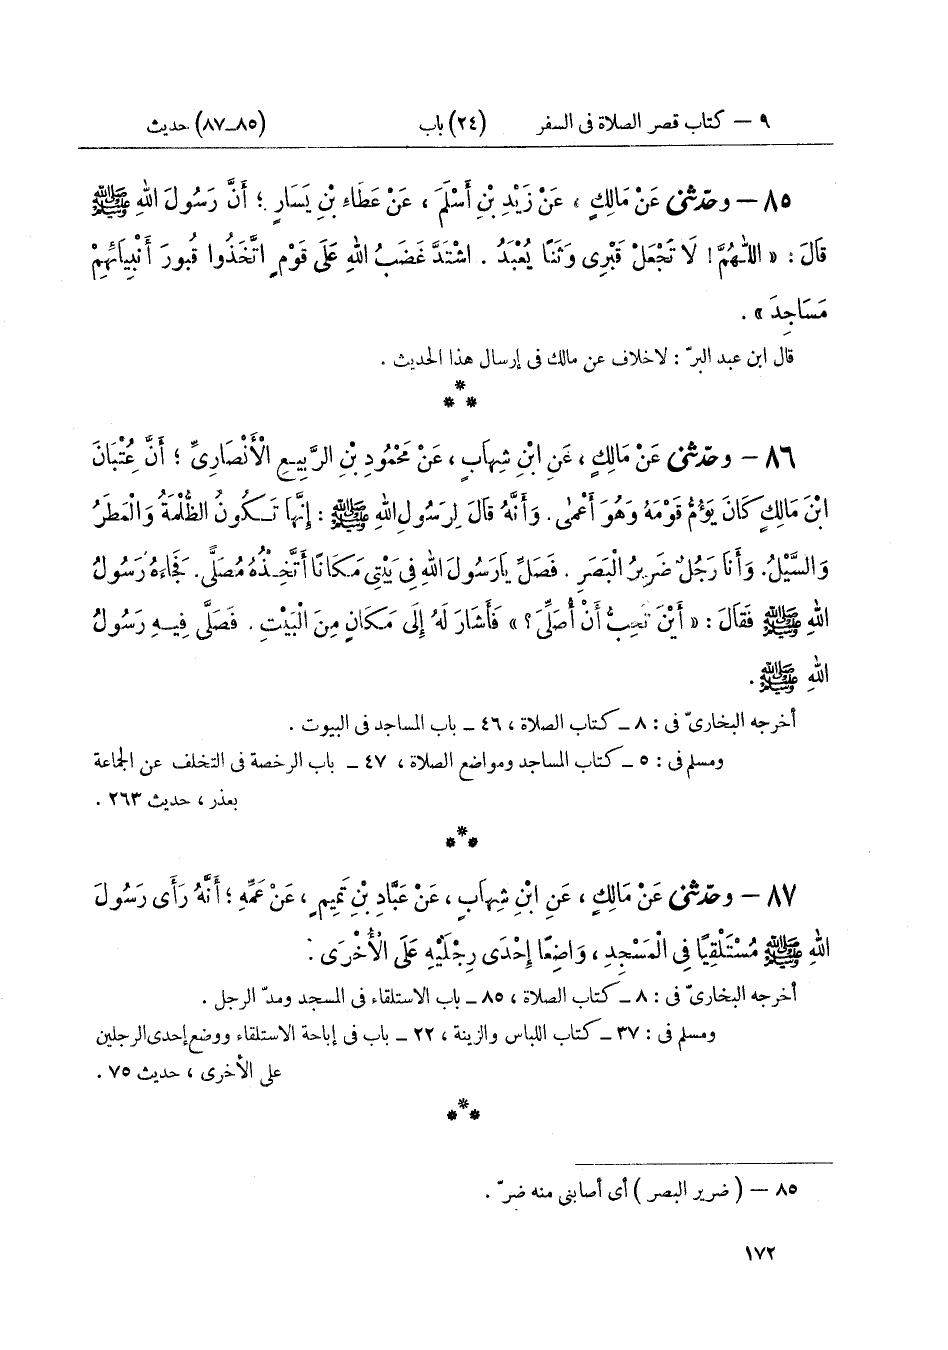 ٩ — كتاب قصر الصلاة فى السفر (٢٤) باب (٨٥_٨٧) حديث
٨٥ — وحَدّثنى عَنْ مَالِكٍ ، عَنْ زَيْدِ بْنِ أَسْلَمَ ، عَنْ عَطَاءِ بْنِ يَسَارٍ ؛ أَنَّ رَسُولَ اللهِ ﷺ
قَالَ : « اللَّهُمَّ ! لَا تَجْعَلْ قَبْرِى وَثَنًا يُعْبَدُ . اشْتَدَّ غَضَبُ اللهِ عَلَى قَوْمٍ اتَّخَذُوا قُبُورَ أَنْبِيَائِهِمْ
مَسَاجِدَ » .
قال ابن عبد البرّ : لاخلاف عن مالك فى إرسال هذا الحديث .
***
٨٦ — وحَدّثنى عَنْ مَالِكٍ ، عَنِ ابْنِ شِهَابٍ ، عَنْ مَحْمُودِ بْنِ الرَّبِيعِ الْأَنْصَارِىِّ ؛ أَنَّ عِتْبَانَ
ابْنَ مَالِكٍ كَانَ يَؤُمُّ قَوْمَهُ وَهُوَ أَعْمَى . وَأَنَّهُ قَالَ لِرَسُولِ اللهِ ﷺ : إِنَّهَا تَكُونُ الظُّلْمَةُ وَالْمَطَرُ
وَالسَّيْلُ. وَأَنَا رَجُلٌ ضَرِيرُ الْبَصَرِ . فَصَلِّ يَارَسُولَ اللهِ فِى بَيْتِى مَكَانًا أَتَّخِذْهُ مُصَلًّى. فَجَاءَهُ رَسُولُ
اللهِ ﷺ فَقَالَ : « أَيْنَ تُحِبُّ أَنْ أُصَلِّىَ ؟ » فَأَشَارَ لَهُ إِلَى مَكَانٍ مِنَ الْبَيْتِ . فَصَلَّى فِيهِ رَسُولُ
اللهِ ﷺ .
أخرجه البخارىّ فى : ٨ ـ كتاب الصلاة ، ٤٦ ـ باب المساجد فى البيوت .
ومسلم فى : ٥ ـ كتاب المساجد ومواضع الصلاة ، ٤٧ ـ باب الرخصة فى التخلف عن الجماعة
بعذر ، حديث ٢٦٣ .
***
٨٧ — وحَدّثنى عَنْ مَالِكٍ ، عَنِ ابْنِ شِهَابٍ ، عَنْ عَبَّادِ بْنِ تَمِيمٍ ، عَنْ عَمِّهِ ؛ أَنَّهُ رَأَى رَسُولَ
اللهِ ﷺ مُسْتَلْقِيًا فِى الْمَسْجِدِ ، وَاضِعًا إِحْدَى رِجْلَيْهِ عَلَى الْأُخْرَى .
أخرجه البخارىّ فى : ٨ ـ كتاب الصلاة ، ٨٥ ـ باب الاستلقاء فى المسجد ومدّ الرجل .
ومسلم فى : ٣٧ ـ كتاب اللباس والزينة ، ٢٢ ـ باب فى إباحة الاستلقاء ووضع إحدى الرجلين
على الأخرى ، حديث ٧٥ .
***
٨٥ — ( ضرير البصر ) أى أصابنى منه ضرّ .
١٧٢